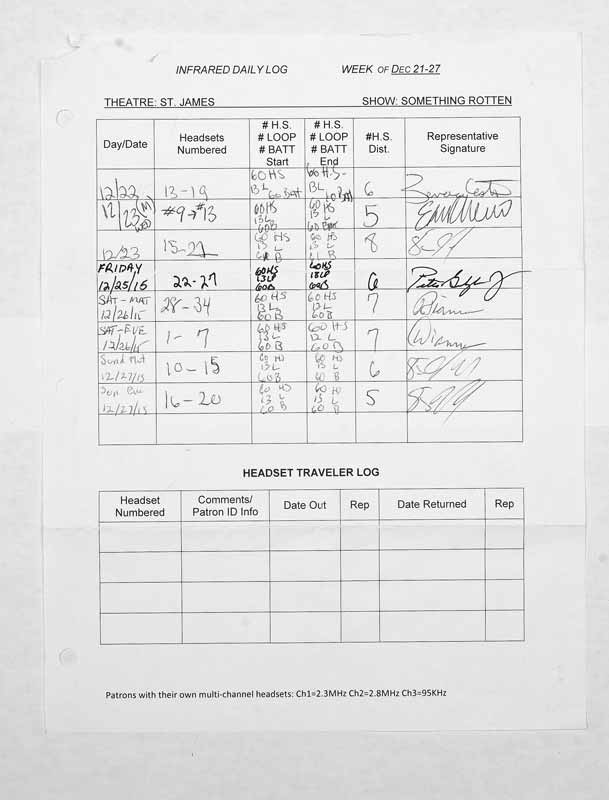 INFRARED DAILY LOG WEEK OF DEC 21-27
THEATRE: ST. JAMES SHOW: SOMETHING ROTTEN
Day/Date Headsets Numbered # H.S. # LOOP # BATT Start # H.S. # LOOP # BATT End #H.S. Dist. Representative Signature
12/22 13-19 60HS 13L 60 Batt 60 H.S- 13L 60 Batt 6
12/23 (M) WED #9→#13 60HS 13L 60B 60 HS 13 L 60 Batt 5
12/23 15-22 60 HS 13 L B 60 HS 13 L B 8
FRIDAY 12/25/15 22-27 60HS 13LP 60B 60HS 13LP 60B 6
SAT-MAT 12/26/15 28-34 60 HS 13L 60 B 60 HS 13L 60B 7
SAT-EVE 12/26/15 1-7 60HS 13L 60 B 60 HS 12 L 60 B 7
Sund Mat 12/27/15 10-15 60 HS 13L 60B 60 HS 13 L 60 B 6
Sun Eve 12/27/15 16-20 60 HS 13 L 60 B 60 HS 13 L 60 B 5
HEADSET TRAVELER LOG
Headset Numbered Comments/ Patron ID Info Date Out Rep Date Returned Rep
Patrons with their own multi-channel headsets: Ch1=2.3MHz Ch2=2.8MHz Ch3=95KHz